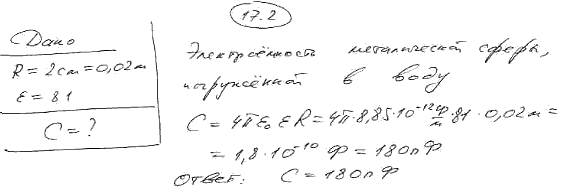 17.2
Дано
R = 2см = 0,02м
ε = 81
C = ?
Электроёмкость металической сферы,
погружённой в воду
C = 4πε₀εR = 4π·8,85·10⁻¹² ф/м ·81·0,02м =
= 1,8·10⁻¹⁰ Ф = 180пФ
Ответ: C = 180пФ